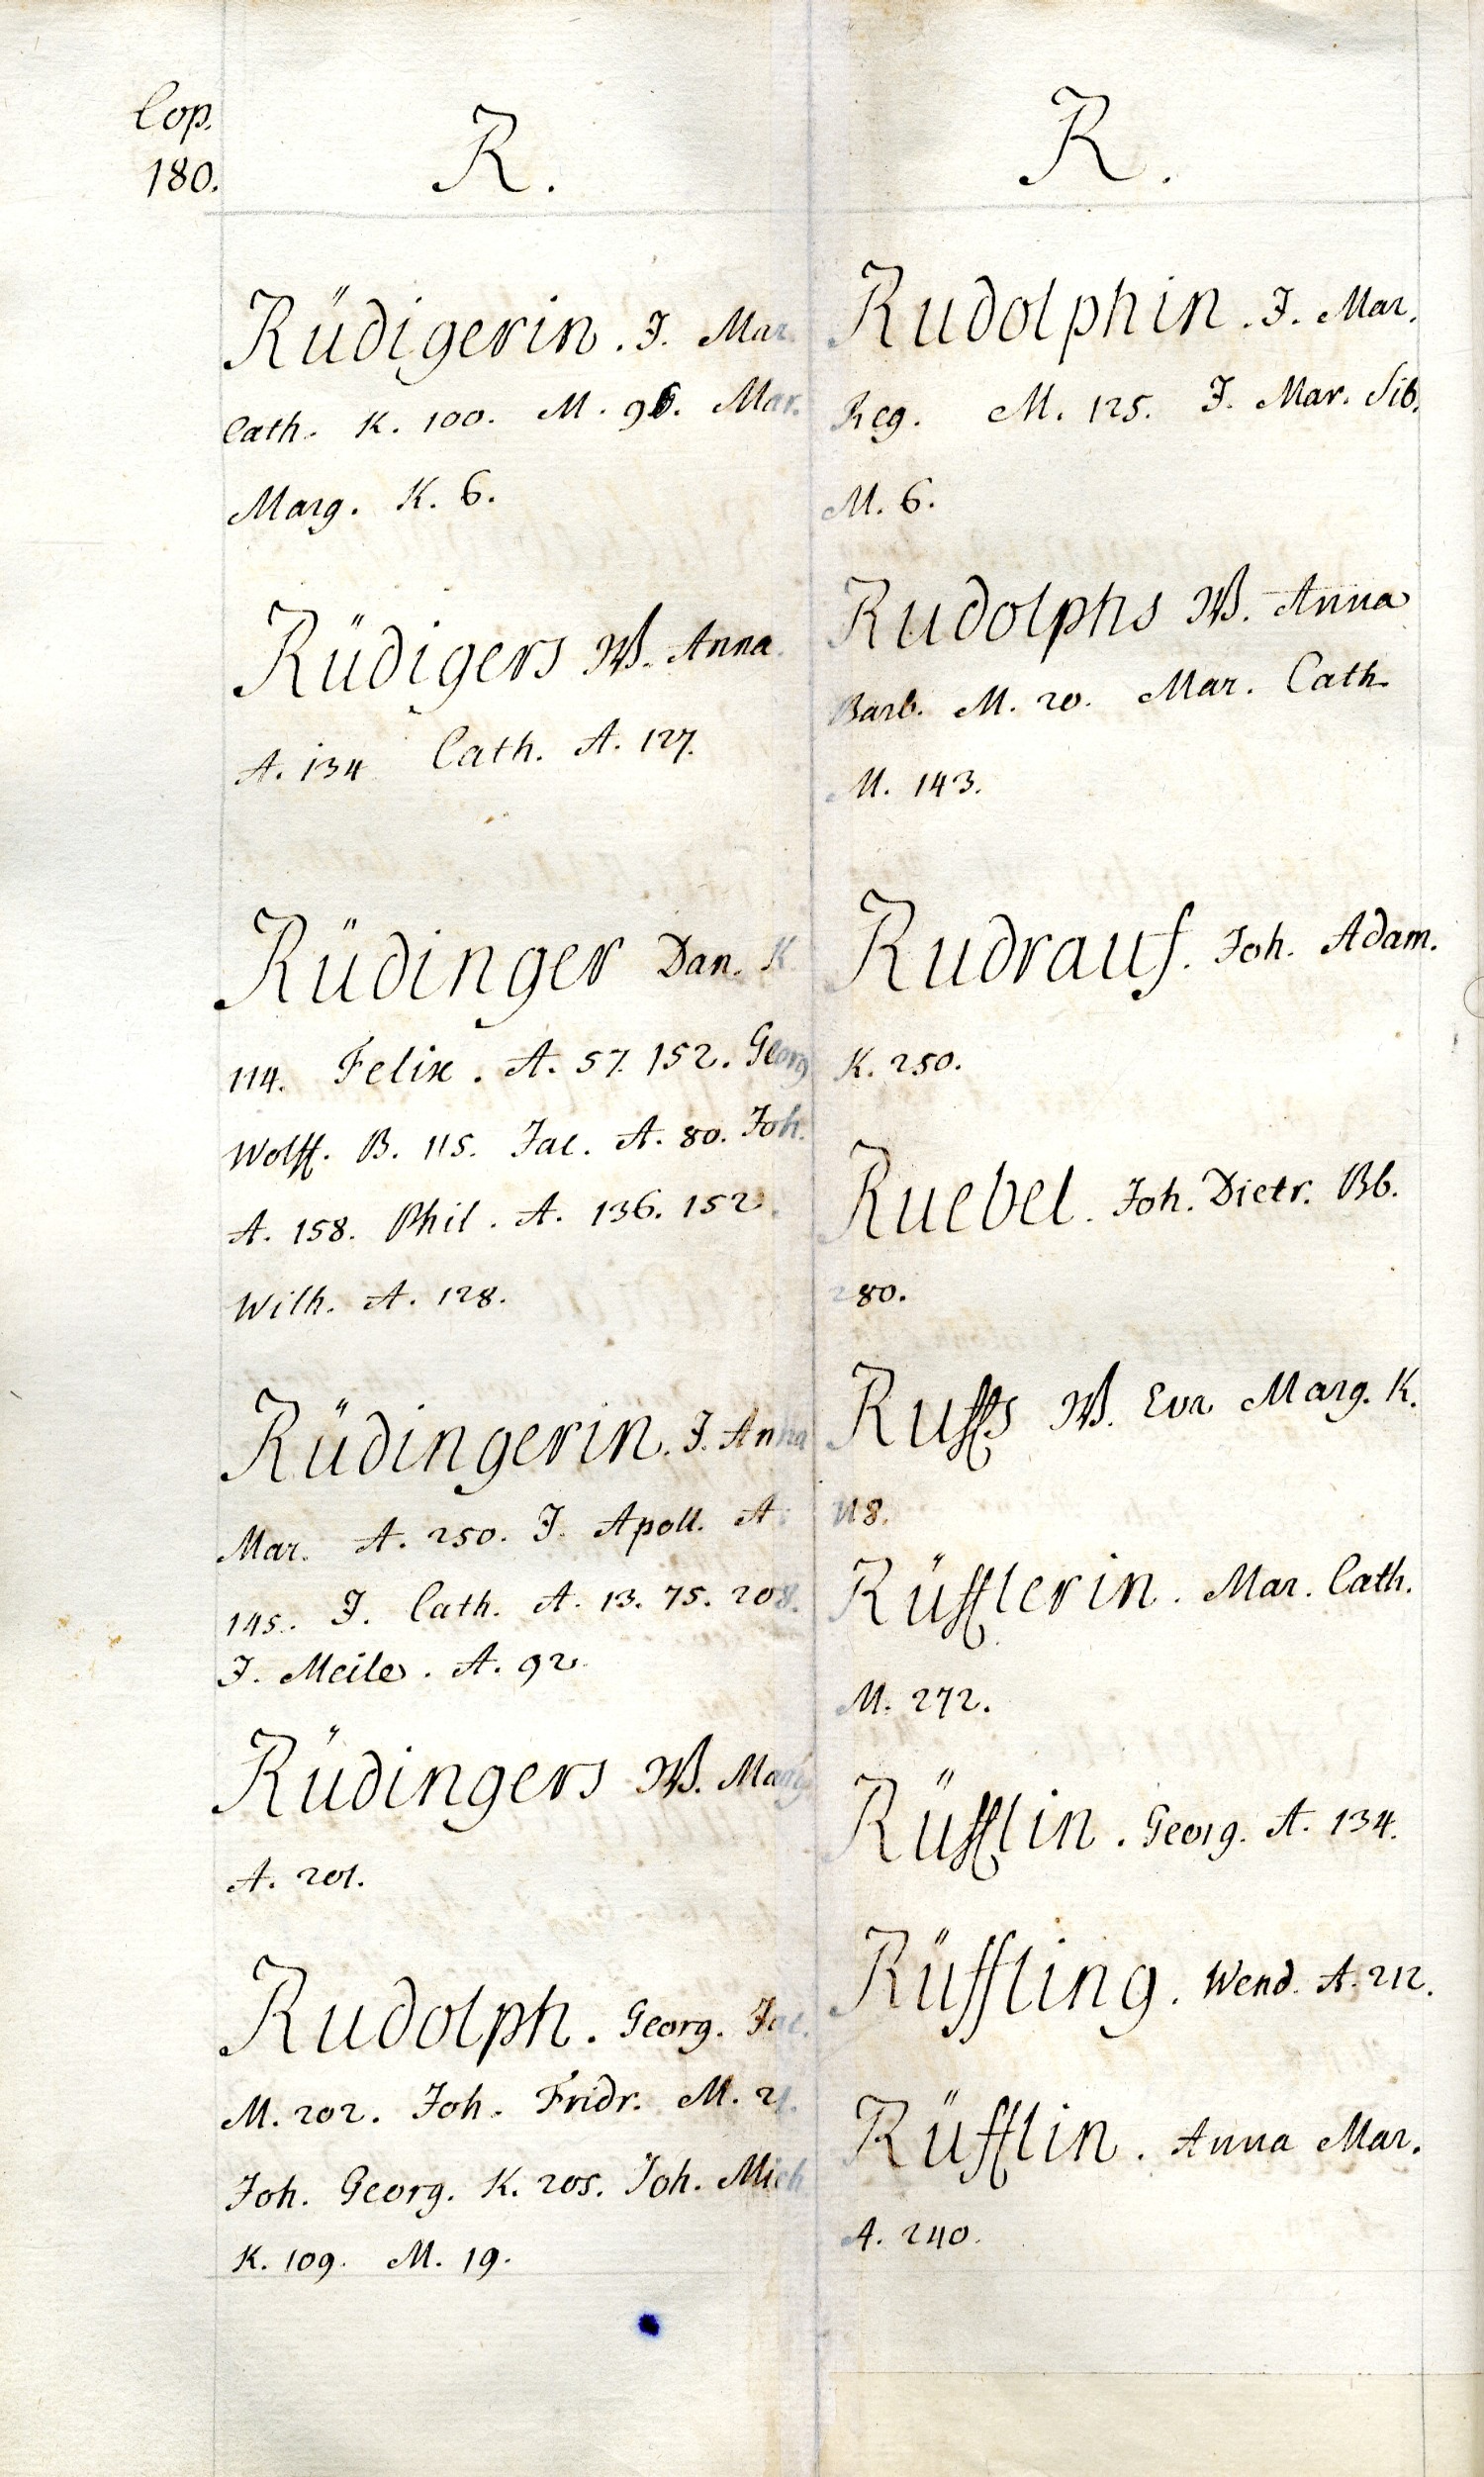 Cop.
180.
R.
Rüdigerin. J. Mar.
Cath. K. 100. M. 96. Mar.
Marg. K. 6.
Rüdigers W. Anna.
A. 134 Cath. A. 127.
Rüdinger Dan. K.
114. Felix. A. 57. 152. Georg
Wolff. B. 115. Jac. A. 80. Joh.
A. 158. Phil. A. 136. 152.
Wilh. A. 128.
Rüdingerin. J. Anna
Mar. A. 250. J. Apoll. A.
145. J. Cath. A. 13. 75. 208.
J. Meile. A. 92.
Rüdingers W. Marg.
A. 201.
Rudolph. Georg. Jac.
M. 202. Joh. Fridr. M. 21.
Joh. Georg. K. 205. Joh. Mich
K. 109. M. 19.
R.
Rudolphin. J. Mar.
Reg. M. 125. J. Mar. Sib.
M. 6.
Rudolphs W. Anna
Barb. M. 20. Mar. Cath.
M. 143.
Rudrauf. Joh. Adam.
K. 250.
Ruebel. Joh. Dietr. Bb.
280.
Ruffs W. Eva Marg. K.
118.
Rüfflerin. Mar. Cath.
M. 272.
Rüfflin. Georg. A. 134.
Rüffling. Wend. A. 212.
Rüfflin. Anna Mar.
A. 240.